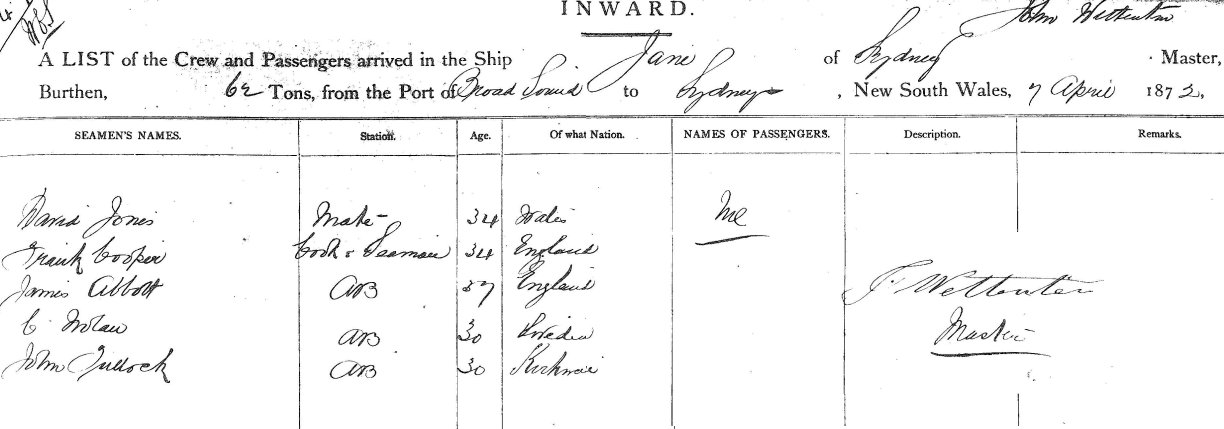 INWARD.
John Wettenton
A LIST of the Crew and Passengers arrived in the Ship Jane of Sydney Master,
Burthen, 62 Tons, from the Port of Broad Sound to Sydney, New South Wales, 7 April 1872,
SEAMEN'S NAMES. Station. Age. Of what Nation. NAMES OF PASSENGERS. Description. Remarks.
David Jones Mate 34 Wales Nil
Frank Cooper Cook & Seaman 34 England
James Abbott AB 37 England J Wettenton
C Nolan AB 30 Sweden Master
John Tullock AB 30 Kirkwall